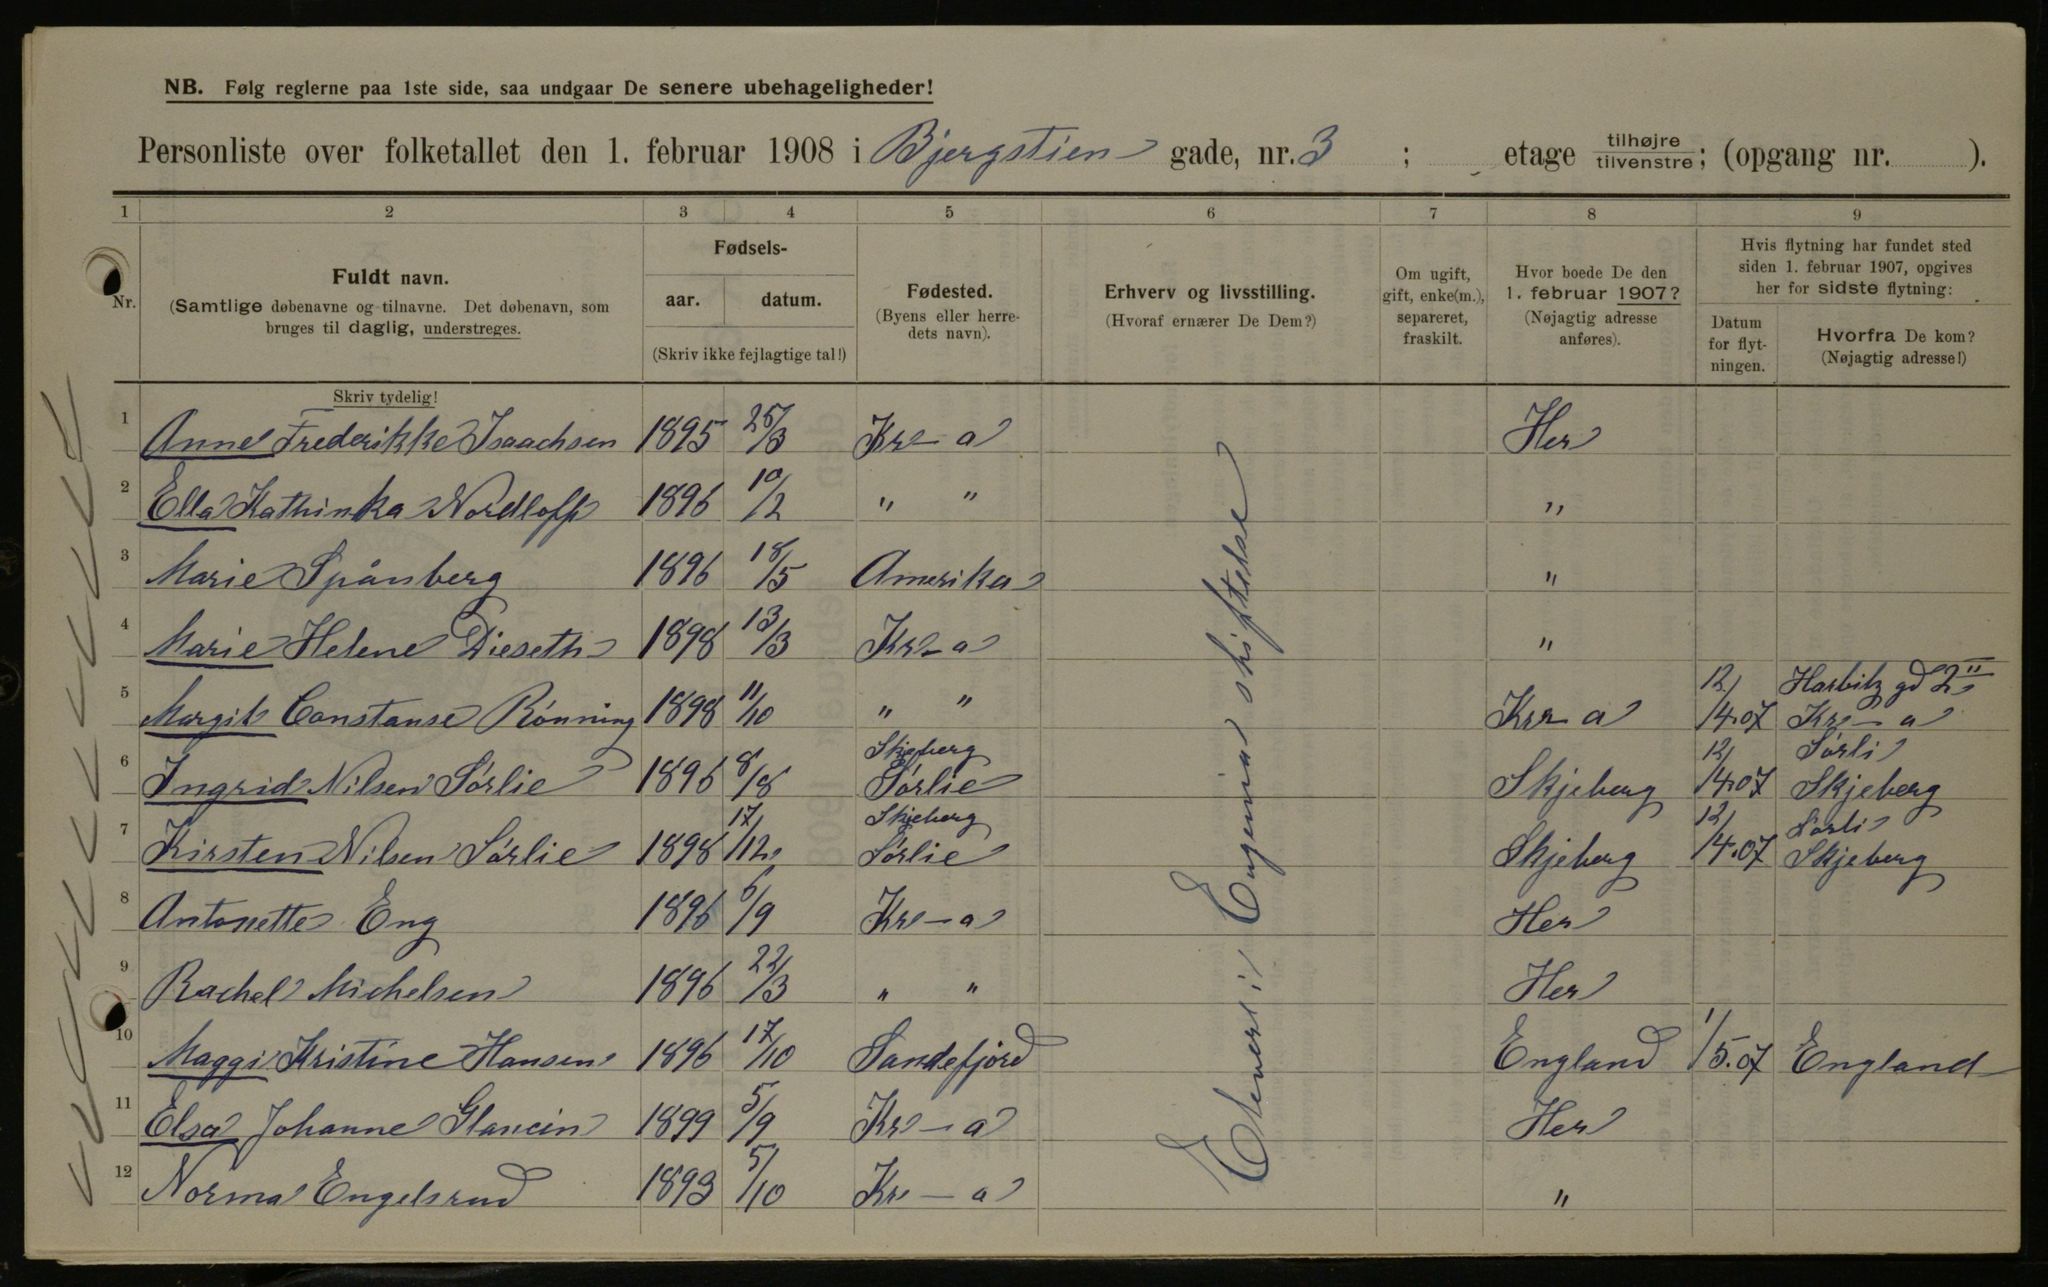 NB. Følg reglerne paa 1ste side, saa undgaar De senere ubehageligheder!
Personliste over folketallet den 1. februar 1908 i Bjergstien gade, nr. 3 ; etage tilhøjre tilvenstre; (opgang nr. ).
1 2 3 4 5 6 7 8 9
Nr.
Fuldt navn.
(Samtlige døbenavne og tilnavne. Det døbenavn, som
bruges til daglig, understreges.
Skriv tydelig!
Fødsels-
aar. datum.
(Skriv ikke fejlagtige tal!)
Fødested.
(Byens eller herre-
dets navn).
Erhverv og livsstilling.
(Hvoraf ernærer De Dem?)
Om ugift,
gift, enke(m.),
separeret,
fraskilt.
Hvor boede De den
1. februar 1907?
(Nøjagtig adresse
anføres).
Hvis flytning har fundet sted
siden 1. februar 1907, opgives
her for sidste flytning:
Datum
for flyt-
ningen.
Hvorfra De kom?
(Nøjagtig adresse!)
1 Anne Frederikke Isaachsen 1895 25/3 Kr-a Her
2 Ella Kathinka Nordloff 1896 10/2 " " "
3 Marie Spånberg 1896 18/5 Amerika "
4 Marie Helene Dieseth 1898 13/3 Kr-a "
5 Margit Constanse Rønning 1898 11/10 " " Kr-a 12/14.07 Harbitz gd 2 II Kr-a
6 Ingrid Nilsen Sørlie 1896 8/8 Skjeberg Sørlie Skjeberg 12/14.07 Sørli Skjeberg
7 Kirsten Nilsen Sørlie 1898 17/12 Skjeberg Sørlie Skjeberg 12/14.07 Sørli Skjeberg
8 Antonette Eng 1896 6/9 Kr-a Her
9 Rachel Michelsen 1896 22/3 " " Her
10 Maggi Kristine Hansen 1896 17/10 Sandefjord England 1/5.07 England
11 Elsa Johanne 1899 5/9 Kr-a Her
12 Norma Engelsrud 1893 5/10 Kr-a "
Elever i Eugenias stiftelse